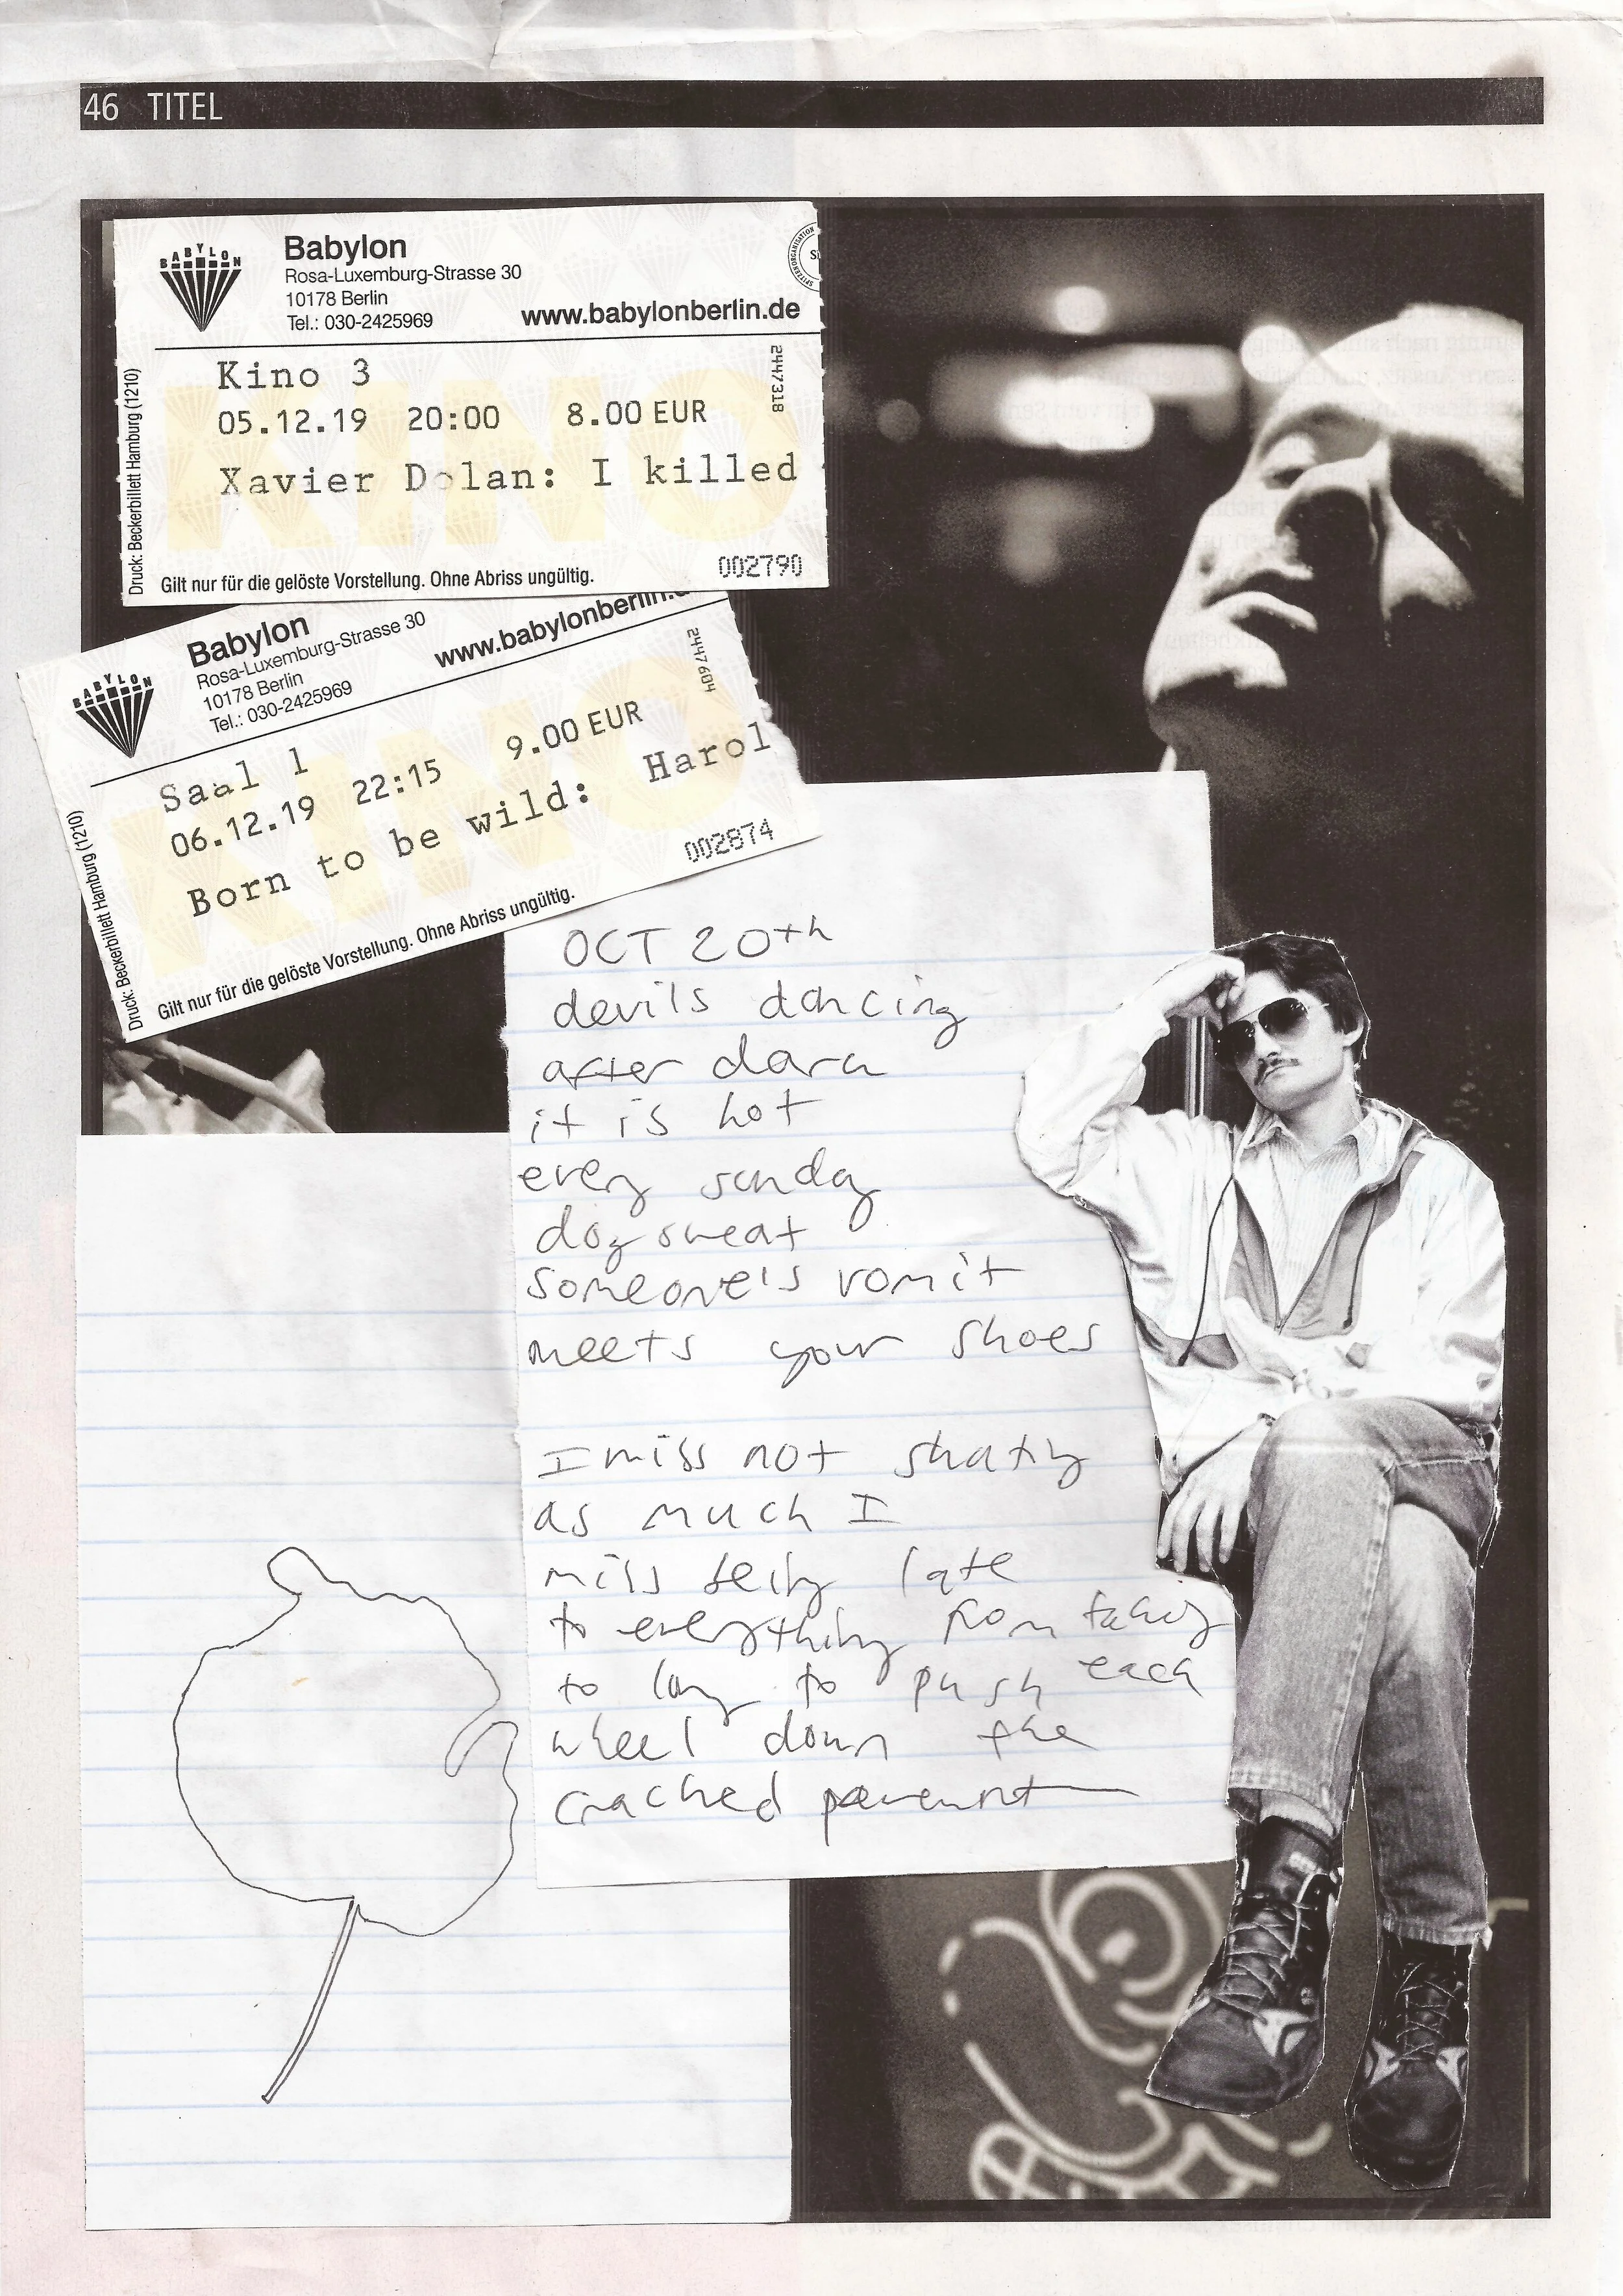 46 TITEL
BABYLON
Babylon
Rosa-Luxemburg-Strasse 30
10178 Berlin
Tel.: 030-2425969
www.babylonberlin.de
SPITZENORGANISATION
Druck: Beckerbillett Hamburg (1210)
Kino 3
05.12.19 20:00 8.00 EUR
Xavier Dolan: I killed
2447318
KINO
002790
Gilt nur für die gelöste Vorstellung. Ohne Abriss ungültig.
BABYLON
Babylon
Rosa-Luxemburg-Strasse 30
10178 Berlin
Tel.: 030-2425969
www.babylonberlin.d
Druck: Beckerbillett Hamburg (1210)
Saal 1
06.12.19 22:15 9.00 EUR
Born to be wild: Harol
2447604
KINO
002874
Gilt nur für die gelöste Vorstellung. Ohne Abriss ungültig.
OCT 20th
devils dancing
after dark
it is hot
every sunday
dog sweat
someone's vomit
meets your shoes
I miss not skating
as much I
miss being late
to everything from taking
to long to push each
wheel down the
cracked pavement